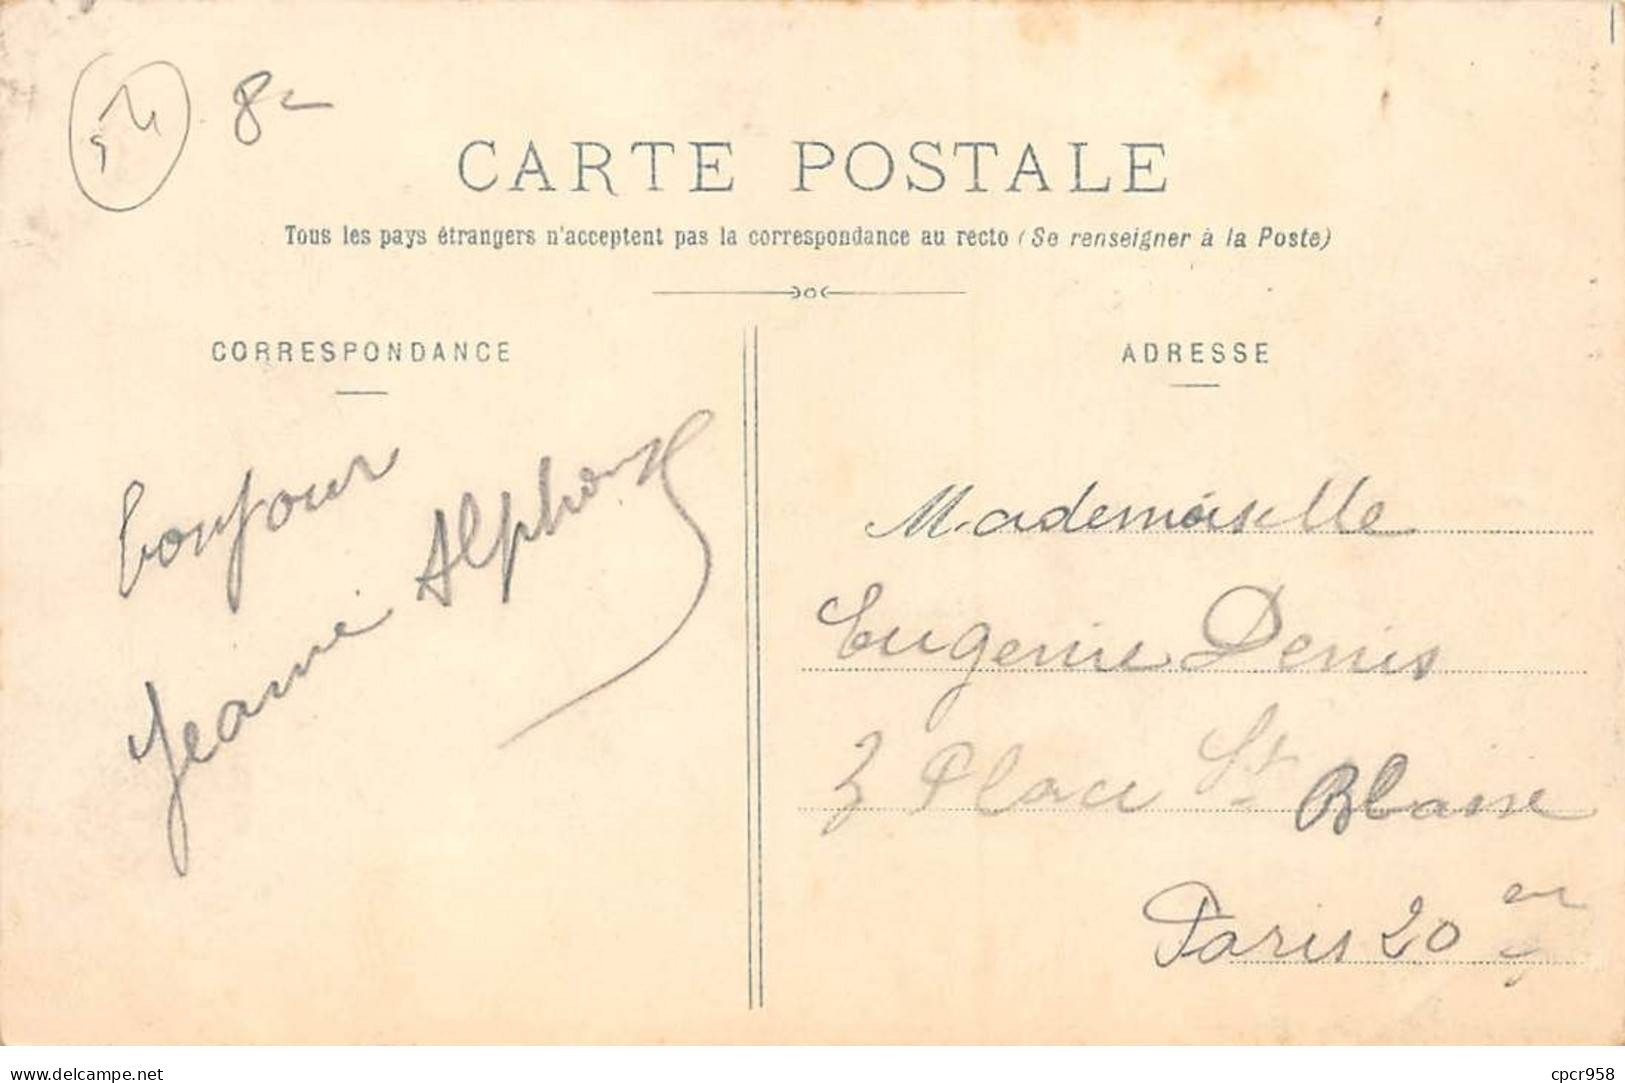 54
8
CARTE POSTALE
Tous les pays étrangers n'acceptent pas la correspondance au recto (Se renseigner à la Poste)
CORRESPONDANCE
bonjour
Jeanne Alphonse
ADRESSE
Mademoiselle
Eugenie Denis
3 Place St Blaise
Paris 20
www.delcampe.net
cpcr958